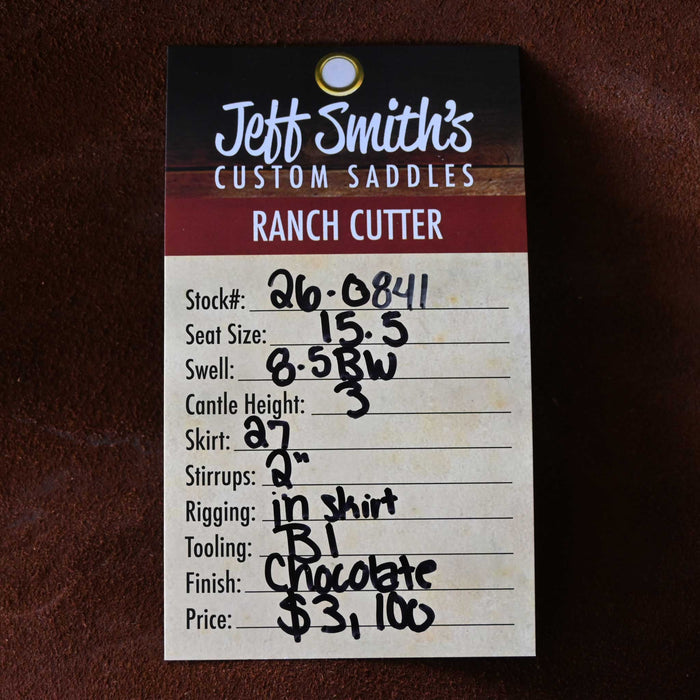 Jeff Smith's
CUSTOM SADDLES
RANCH CUTTER
Stock#: 26-0841
Seat Size: 15.5
Swell: 8.5BW
Cantle Height: 3
Skirt: 27
Stirrups: 2"
Rigging: in skirt
Tooling: B1
Finish: Chocolate
Price: $3,100